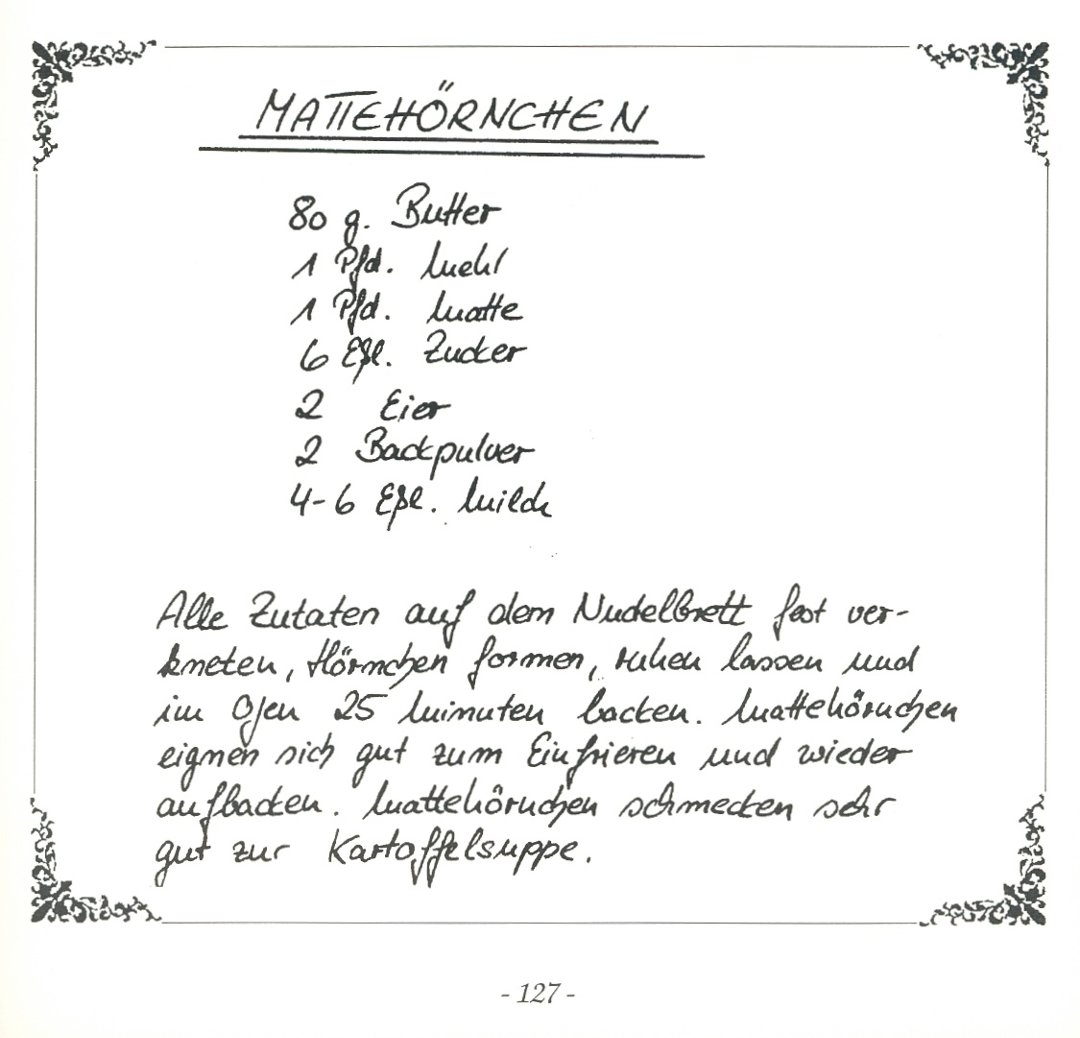 MATTEHÖRNCHEN
80 g. Butter
1 Pfd. Mehl
1 Pfd. Matte
6 Eßl. Zucker
2 Eier
2 Backpulver
4-6 Eßl. Milch
Alle Zutaten auf dem Nudelbrett fest ver-
kneten, Hörnchen formen, ruhen lassen und
im Ofen 25 Minuten backen. Mattehörnchen
eignen sich gut zum Einfrieren und wieder
aufbacken. Mattehörnchen schmecken sehr
gut zur Kartoffelsuppe.
- 127 -